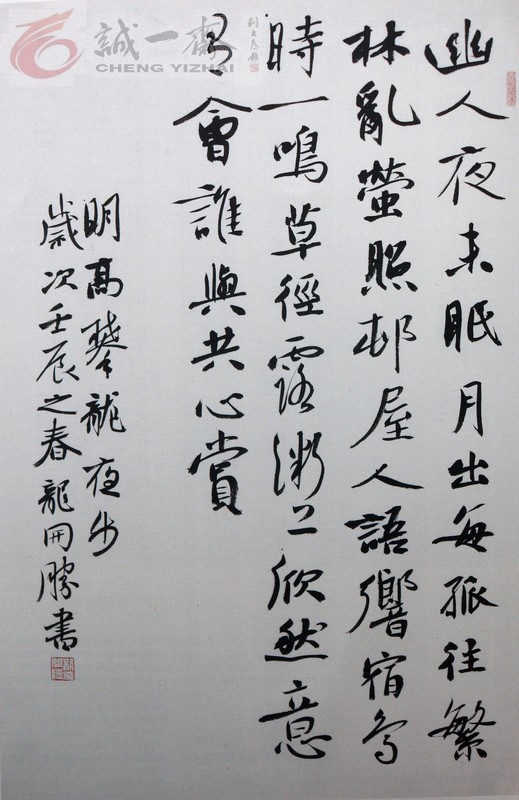 誠一齋
CHENG YIZHAI
幽人夜未眠月出每孤往繁
林亂螢照邨屋人語響宿鳥
時一鳴草徑露微上欣然意
有會誰與共心賞
明高攀龍夜步
歲次壬辰之春龍開勝書